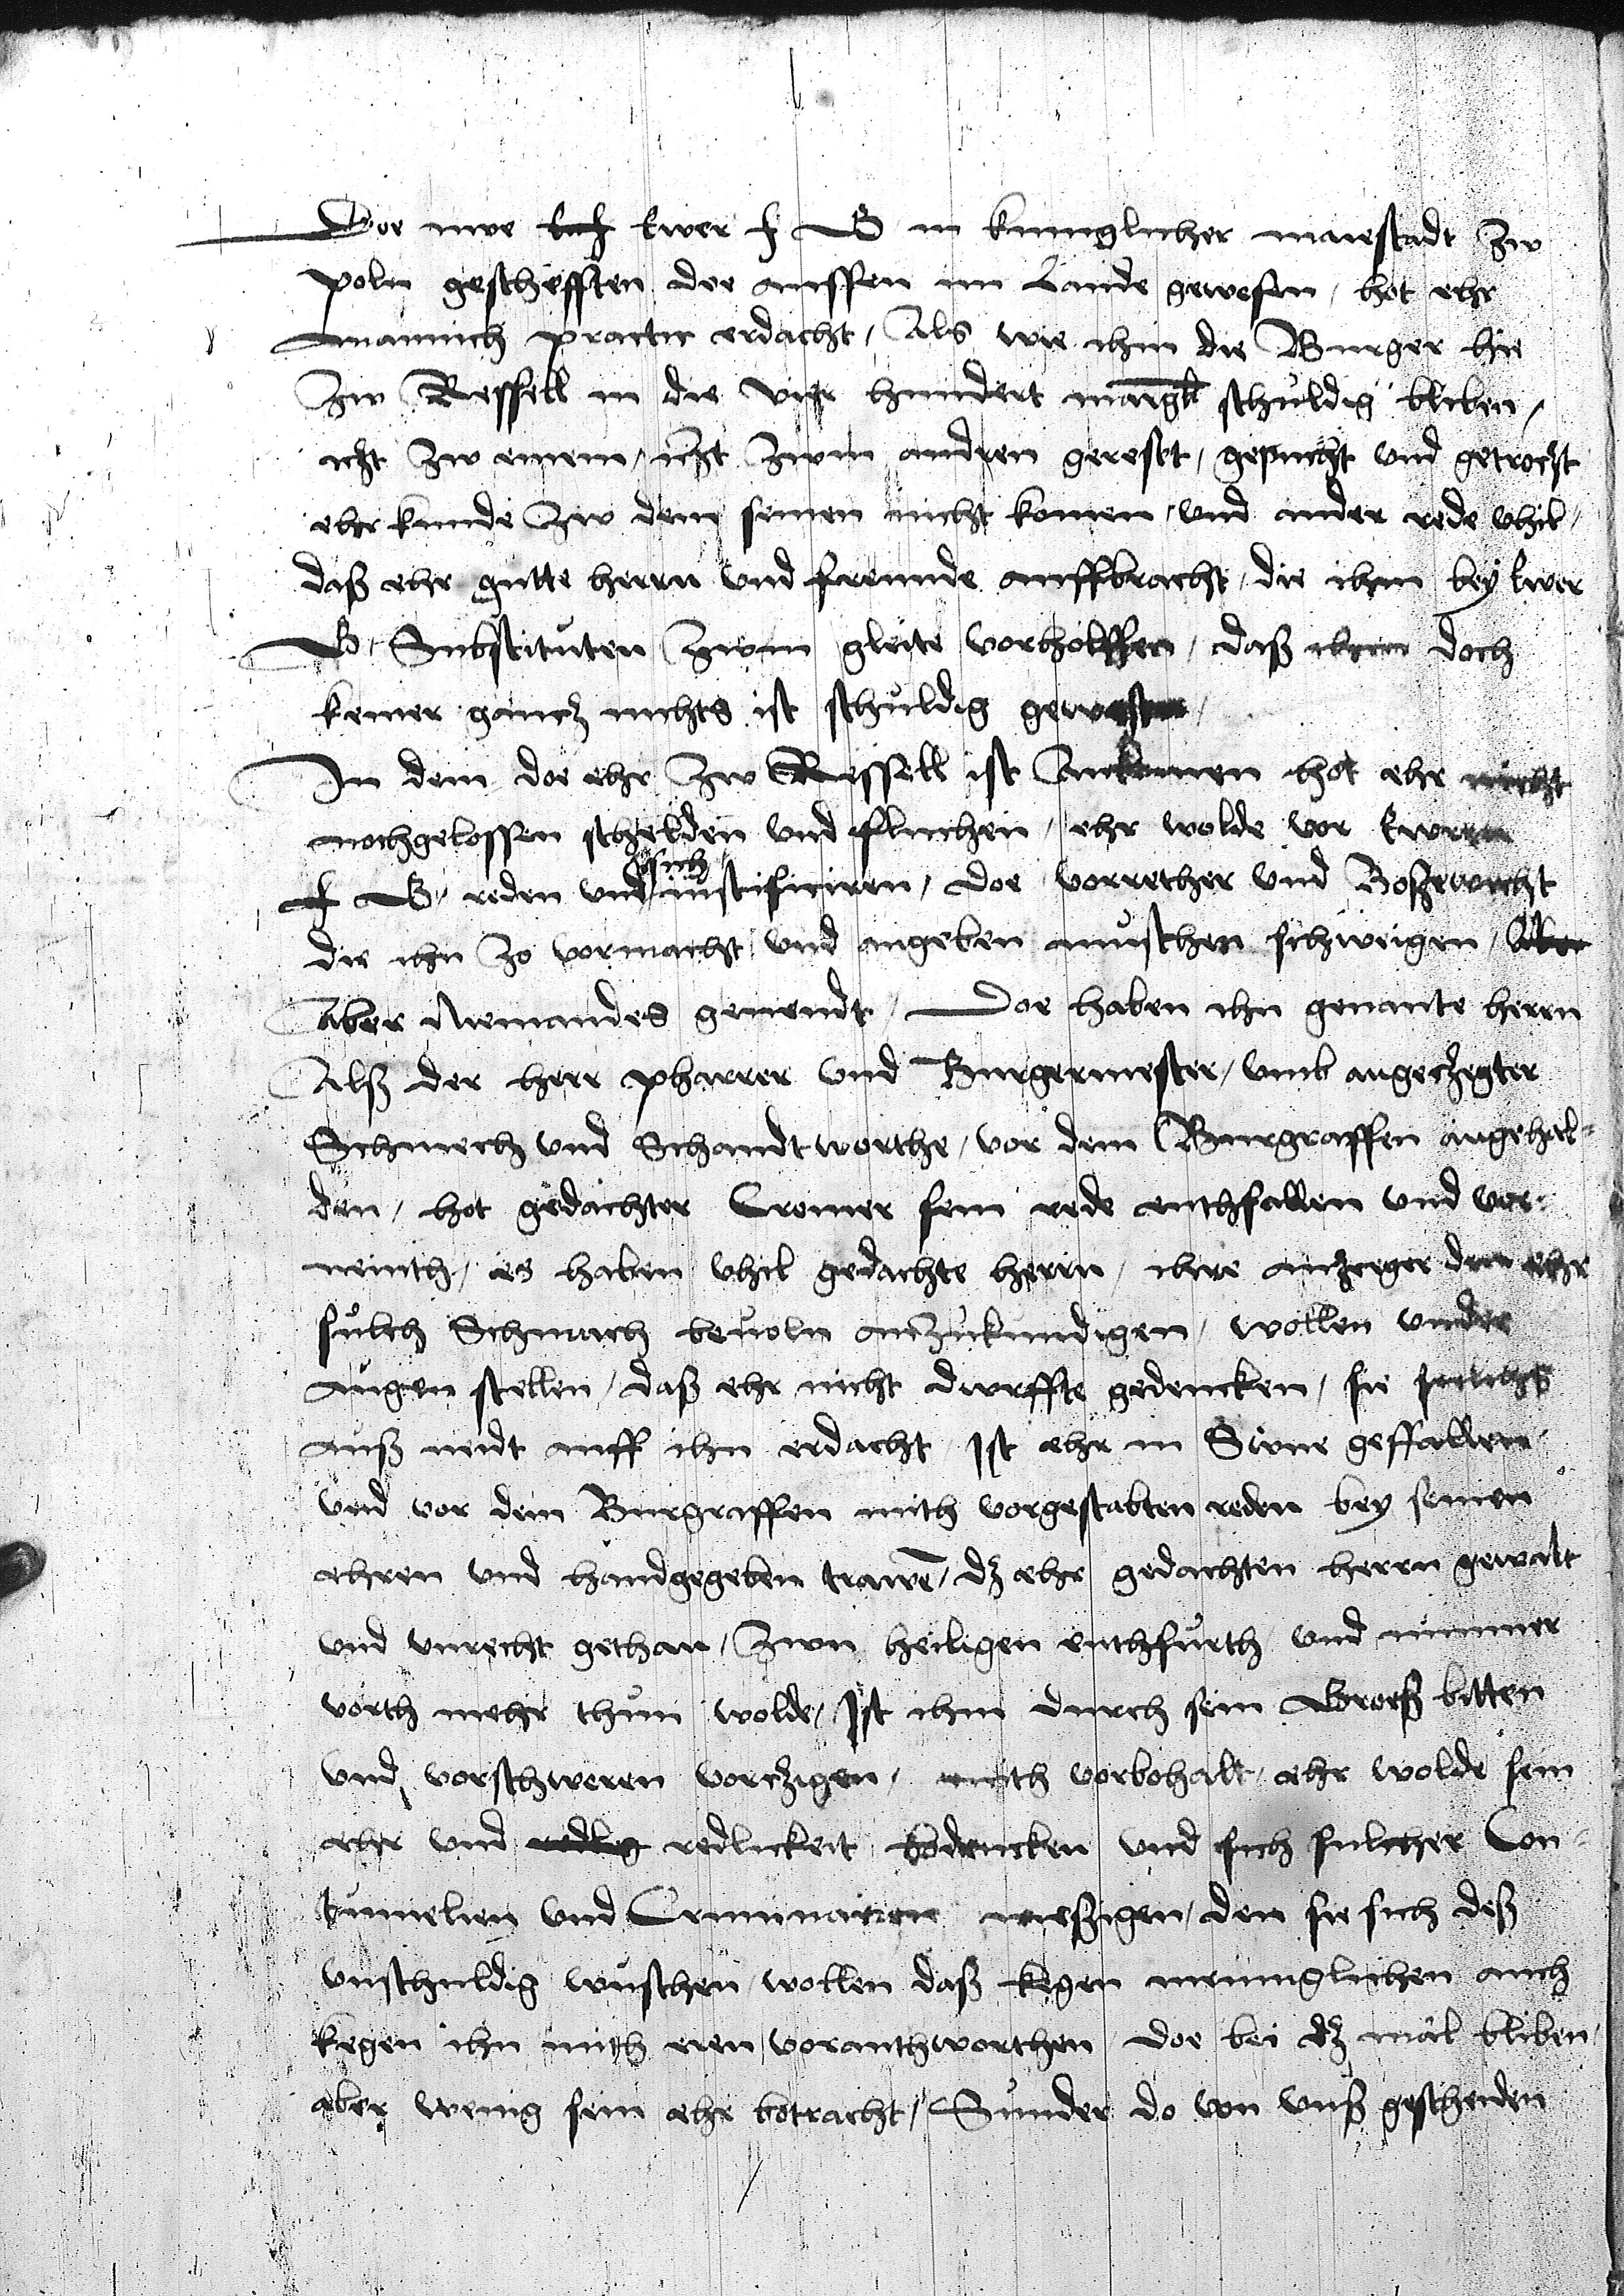 Doe nwe Ewer f G in kuniglicher maiestadt zw
poln geschefften doe aussen im Lande gewesen / hot ehr
mannich practic erdacht / Als wie ihm die Burger hie
zw Ressell in die vier hundert margk schuldig bliben /
itzt zw einem / itzt zwm andren gereset / gepucht vnd getroczt
ehr kunde zw dem seinen nicht komen / vnd ander rede vhil /
daß ehr gutte herrn vnd freunde auffbracht / die ihm bey Ewer
G / Substituten zwm gleite vorholffen / daß ihm doch
keiner gancz nichts ist schuldig gewesen /
In dem doe ehr zw Ressell ist Ankomen hot ehr nicht
nochgelossen schelden vnd fluchen / ehr wolde vor Ewren
f G / reden vnd sich iustificiren / doe vorrether vnd Boßewicht
die ihn zo vormacht vnd angeben musthen schweigen / Aber
aber Niemandes genendt / Doe haben ihn genante herrn
Alß der herr pharrer vnd Burgermester / vmb angeczegter
Schmech vnd Schandtworthe / vor dem Burgraffen angehal-
den / hot gedachter Cromer sein rede enthfallen vnd vor-
neinth / es haben vhil gedachte herrn / ihre anzeiger den ehr
sulch Schmach beuoln anzukundigen / wollen vnder
augen stellen / daß ehr nicht durffte gedencken / sie
auß neidt auff ihn erdacht / Ist ehr in Süne geffallen
vnd vor dem Burgraffen mith vorgestabten reden bey seinen
ehren vnd handgegeben trawē / dz ehr gedachten herrn gewalt
vnd vnrecht gethan / zwn heiligen enthfurth vnd nimmer
vorth mehr thun wolde / Ist ihm durch sein Groeß bitten
vnd vorschweren vorczigen / mith vorbohalt / ehr wolde sein
ehr vnd redlickeit bodencken vnd sich sulcher Con-
tumelien vnd Criminacion messigen / den sie sich deß
vnschuldig wusthen / wollen daß kegen menniglichen auch
kegen ihn mith eren voranthworthen / doe bei dz mal bliben /
aber wenig sein ehr botracht / Sunder do von vnß gescheiden